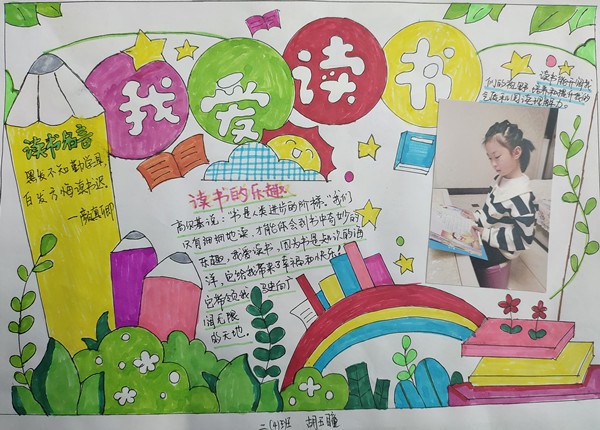 我爱读书
读书能开阔我
们的视野
读书名言
黑发不知勤学早
白首方悔读书迟
—颜真卿
读书的乐趣
高尔基说：“书是人类进步的阶梯.”我们
只有地读，才能体会到书中奇妙的
乐趣，我爱读书，因为书是知识的海
洋，它给我带来了幸福和快乐！
它带领我驶向了
阔无限
的天地。
二(4)班 胡